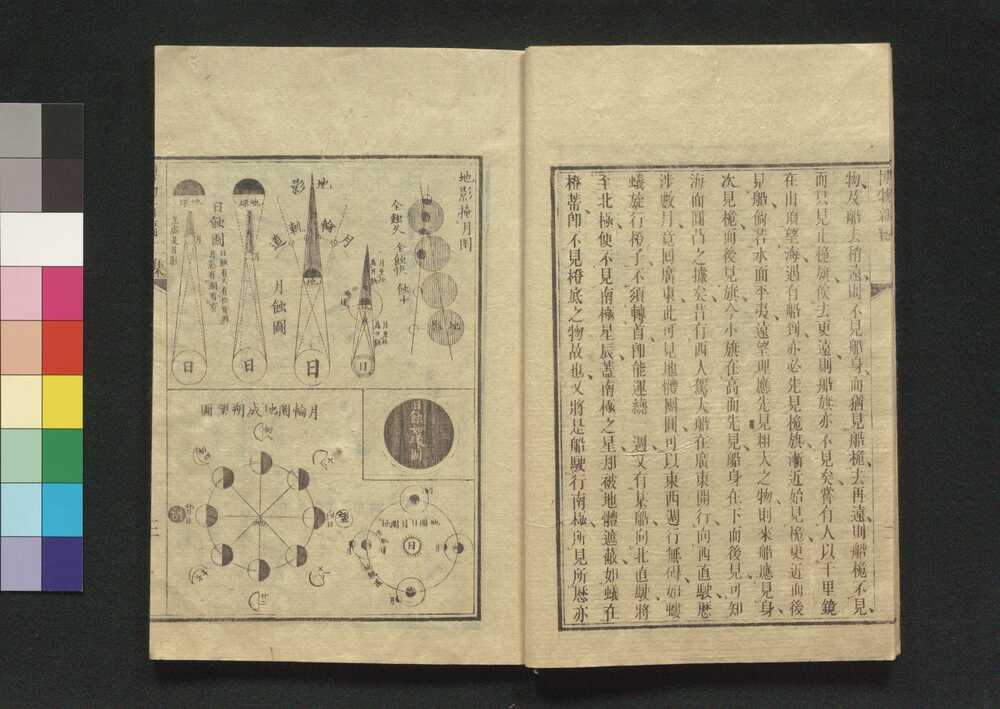 物及船去稍遠則不見船身而猶見船桅去再遠則船桅不見
而只見桅旗俟去更遠則船旗亦不見矣嘗有人以千里鏡
在山頂望海遇有船到亦必先見桅旗漸近始見桅更近而後
見船倘若水面平夷遠望理應先見粗大之物則來船應見身
次見桅而後見旗今小旗在高而先見船身在下而後見可知
海面圓凸之據矣昔行西人駕大船在廣東開行向西直駛歷
涉數月竟回廣東此可見地體團圓可以東西週行無碍如螻
蟻旋行橙子不須轉首卽能運繞 週又有某船向北直駛將
至北極便不見南極星辰蓋南極之星却被地體遮蔽如蟻在
橙蒂卽不見橙底之物故也又將是船駛行南極所見所歷亦
地影掩月圖
全蝕久
全蝕快
地影
地影
月輪軌道
地
日
日
月蝕圖
地球
月
日
日蝕圖
地球
月
日
月蝕如球圖
月輪圍地成朔望圖
地
日